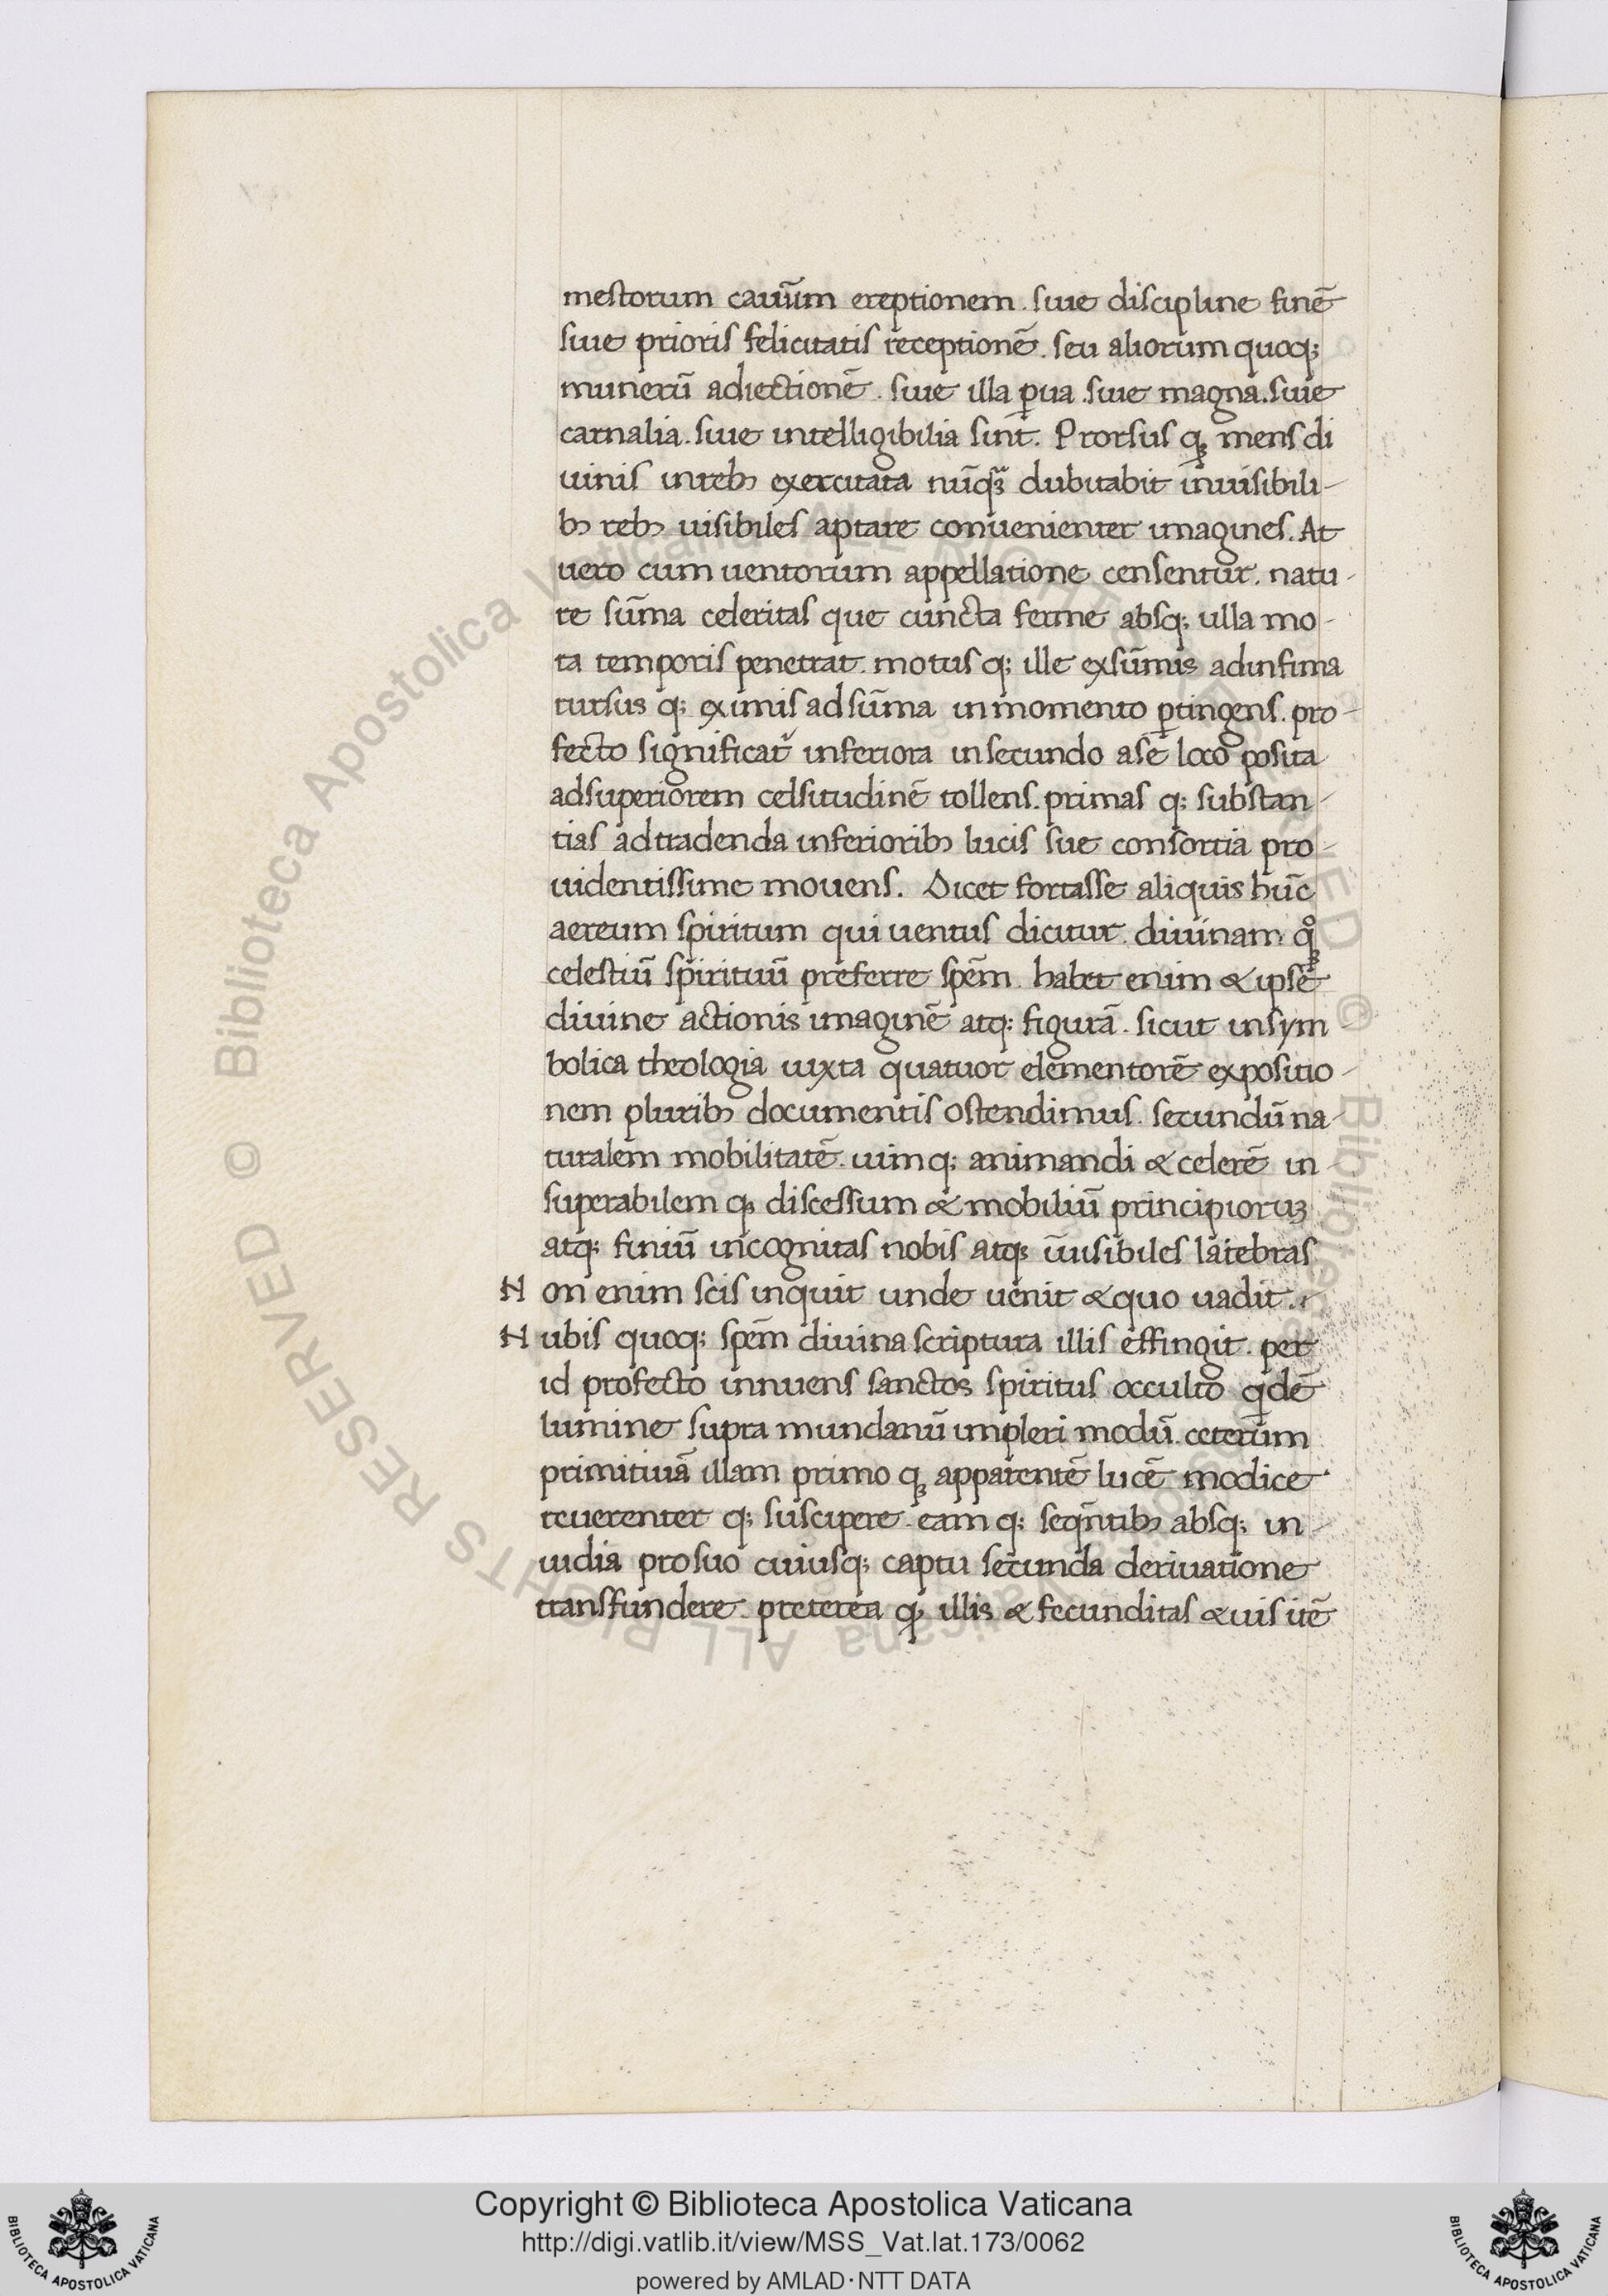 mestorum cauūm ereptionem. siue discipline finē
siue prioris felicitatis receptionē. seu aliorum quoq;
munerū adiectionē. siue illa ꝑua. siue magna. siue
carnalia. siue intelligibilia sint. Prorsus q; mens di
uinis in rebꝫ exercitata nūq̄ꝫ dubitabit inuisibili-
bꝫ rebꝫ uisibiles aptare conuenienter imagines. At
uero cum uentorum appellatione censentur. natu-
re sūma celeritas que cuncta ferme absq; ulla mo-
ra temporis penetrat. motus q; ille ex sūmis ad infima
rursus q; ex imis ad sūma in momento ꝑtingens. pro-
fecto significat inferiora in secundo a se loco posita
ad superiorem celsitudinē tollens. primas q; substan-
tias ad tradenda inferioribꝫ lucis sue consortia pro-
uidentissime mouens. Dicet fortasse aliquis hūc
aereum spiritum qui uentus dicitur. diuinam q̊ꝫ
celestiū spirituū preferre spēm. habet enim & ipse
diuine actionis imaginē atq; figurā. sicut in sym
bolica theologia iuxta quatuor elementorē expositio-
nem pluribꝫ documentis ostendimus. secundū na-
turalem mobilitatē. uim q; animandi & celerē in-
superabilem q; discessum & mobiliū principioruꝫ
atq; finiū incognitas nobis atq; īuisibiles latebras
Non enim scis inquit unde uenit & quo uadit.
Nubis quoq; spēm diuina scriptura illis effingit. per
id profecto innuens sanctos spiritus occulto qͥdē
lumine supra mundanū impleri modū. ceterum
primitiuā illam primo q; apparentē lucē modice
reuerenter q; suscipere. eam q; seq̄ntibꝫ absq; in-
uidia pro suo cuiusq; captu secunda deriuatione
transfundere. preterea q; illis & fecunditas & uis itē
Copyright © Biblioteca Apostolica Vaticana
http://digi.vatlib.it/view/MSS_Vat.lat.173/0062
powered by AMLAD·NTT DATA
BIBLIOTECA APOSTOLICA VATICANA
BIBLIOTECA APOSTOLICA VATICANA
© Biblioteca Apostolica Vaticana ALL RIGHTS RESERVED
© Biblioteca Apostolica Vaticana ALL RIGHTS RESERVED